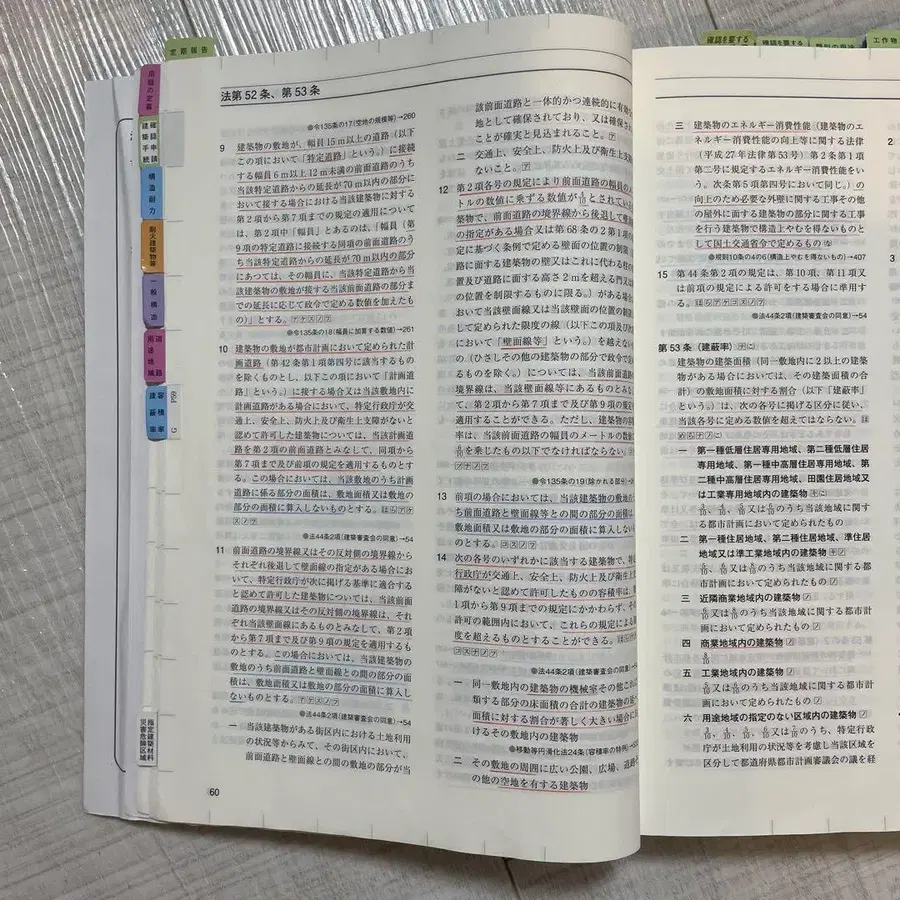 定期報告
用語の定義
確認申請
建築手続
構造耐力
耐火建築物等
一般構造
道路
用途地域
容積率
建蔽率
P59
G
指定建築材料
災害危険区域
法第52条、第53条
●令135条の17(空地の規模等)→260
9 建築物の敷地が、幅員15m以上の道路(以下
この項において「特定道路」という。)に接続
する幅員6m以上12m未満の前面道路のうち
当該特定道路からの延長が70m以内の部分に
おいて接する場合における当該建築物に対する
第2項から第7項までの規定の適用について
は、第2項中「幅員」とあるのは、「幅員(第
9項の特定道路に接続する同項の前面道路のう
ち当該特定道路からの延長が70m以内の部分
にあつては、その幅員に、当該特定道路から当
該建築物の敷地が接する当該前面道路の部分ま
での延長に応じて政令で定める数値を加えたも
の)」とする。
●令135条の18(幅員に加算する数値)→261
10 建築物の敷地が都市計画において定められた計
画道路(第42条第1項第四号に該当するもの
を除くものとし、以下この項において「計画道
路」という。)に接する場合又は当該敷地内に
計画道路がある場合において、特定行政庁が交
通上、安全上、防火上及び衛生上支障がないと
認めて許可した建築物については、当該計画道
路を第2項の前面道路とみなして、同項から
第7項まで及び前項の規定を適用するものとす
る。この場合においては、当該敷地のうち計画
道路に係る部分の面積は、敷地面積又は敷地の
部分の面積に算入しないものとする。
●法44条2項(建築審査会の同意)→54
11 前面道路の境界線又はその反対側の境界線から
それぞれ後退して壁面線の指定がある場合にお
いて、特定行政庁が次に掲げる基準に適合する
と認めて許可した建築物については、当該前面
道路の境界線又はその反対側の境界線は、それ
ぞれ当該壁面線にあるものとみなして、第2項
から第7項まで及び第9項の規定を適用するも
のとする。この場合においては、当該建築物の
敷地のうち前面道路と壁面線との間の部分の面
積は、敷地面積又は敷地の部分の面積に算入し
ないものとする。
●法44条2項(建築審査会の同意)→54
一 当該建築物がある街区内における土地利用
の状況等からみて、その街区内において、
前面道路と壁面線との間の敷地の部分が当
60
該前面道路と一体的かつ連続的に有効な
地として確保されており、又は確保され
ことが確実と見込まれること。
二 交通上、安全上、防火上及び衛生上支障
ないこと。
12 第2項各号の規定により前面道路の幅員のメー
トルの数値に乗ずる数値が4/10とされてい
築物で、前面道路の境界線から後退して壁面
の指定がある場合又は第68条の2第1項
定に基づく条例で定める壁面の位置の制限
路に面する建築物の壁又はこれに代わる柱
置及び道路に面する高さ2mを超える門又
の位置を制限するものに限る。)がある場合
おいて当該壁面線又は当該壁面の位置の制限
して定められた限度の線(以下この項及び
において「壁面線等」という。)を越えない
の(ひさしその他の建築物の部分で政令で定
るものを除く。)については、当該前面道路
境界線は、当該壁面線等にあるものとみな
て、第2項から第7項まで及び第9項の規定
適用することができる。ただし、建築物の
率は、当該前面道路の幅員のメートルの数値
6/10を乗じたもの以下でなければならない。
●令135条の19(除かれる部分)→
13 前項の場合においては、当該建築物の敷地
ち前面道路と壁面線等との間の部分の面積
敷地面積又は敷地の部分の面積に算入しない
ものとする。
14 次の各号のいずれかに該当する建築物で、特
行政庁が交通上、安全上、防火上及び衛生上
障がないと認めて許可したものの容積率は、
1項から第9項までの規定にかかわらず、そ
許可の範囲内において、これらの規定による
度を超えるものとすることができる。
●法44条2項(建築審査会の同意)→
一 同一敷地内の建築物の機械室その他これ
類する部分の床面積の合計の建築物の延べ
面積に対する割合が著しく大きい場合に
けるその敷地内の建築物
●移動等円滑化法24条(容積率の特例)→
二 その敷地の周囲に広い公園、広場、道路そ
の他の空地を有する建築物
確認を要する
確認を要する
工作物
三 建築物のエネルギー消費性能(建築物のエ
ネルギー消費性能の向上等に関する法律
(平成27年法律第53号)第2条第1項
第二号に規定するエネルギー消費性能をい
う。次条第5項第四号において同じ。)の
向上のため必要な外壁に関する工事その他
の屋外に面する建築物の部分に関する工事
を行う建築物で構造上やむを得ないものと
して国土交通省令で定めるもの
●規則10条の4の6(構造上やむを得ないもの)→407
15 第44条第2項の規定は、第10項、第11項又
は前項の規定による許可をする場合に準用す
る。
●法44条2項(建築審査会の同意)→54
第53条(建蔽率)
建築物の建築面積(同一敷地内に2以上の建築
物がある場合においては、その建築面積の合
計)の敷地面積に対する割合(以下「建蔽率」
という。)は、次の各号に掲げる区分に従い、
当該各号に定める数値を超えてはならない。
一 第一種低層住居専用地域、第二種低層住居
専用地域、第一種中高層住居専用地域、第
二種中高層住居専用地域、田園住居地域又
は工業専用地域内の建築物
3/10、4/10、5/10又は6/10のうち当該地域に関す
る都市計画において定められたもの
二 第一種住居地域、第二種住居地域、準住居
地域又は準工業地域内の建築物
5/10、6/10又は8/10のうち当該地域に関する都
市計画において定められたもの
三 近隣商業地域内の建築物
6/10又は8/10のうち当該地域に関する都市計
画において定められたもの
四 商業地域内の建築物
8/10
五 工業地域内の建築物
5/10又は6/10のうち当該地域に関する都市計
画において定められたもの
六 用途地域の指定のない区域内の建築物
3/10、4/10、5/10、6/10又は7/10のうち、特定行政
庁が土地利用の状況等を考慮し当該区域を
区分して都道府県都市計画審議会の議を経